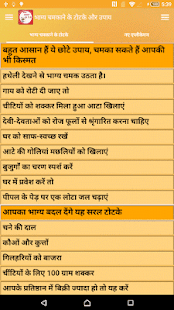 5:39
भाग्य चमकाने के टोटके और उपाय
भाग्य चमकाने के टोटके
नए एप्लीकेशन
बहुत आसान हैं ये छोटे उपाय, चमका सकते हैं आपकी
भी किस्मत
हथेली देखने से भाग्य चमक उठता है।
गाय को रोटी दी जाए तो
चींटियों को शक्कर मिला हुआ आटा खिलाएं
देवी-देवताओं को रोज फूलों से श्रृंगार करना चाहिए
घर को साफ-स्वच्छ रखें
आटे की गोलियां मछलियों को खिलाएं
बुजुर्गों का चरण स्पर्श करें
घर में प्रवेश करें तो
पीपल के पेड़ पर एक लोटा जल चढ़ाएं
आपका भाग्य बदल देंगे यह सरल टोटके
चने की दाल
कौओं और कुत्तों
गिलहरियों को बाजरा
चींटियों के लिए 100 ग्राम शक्कर
आपके प्रतिष्ठान में बिक्री ज्यादा हो तो यह करें